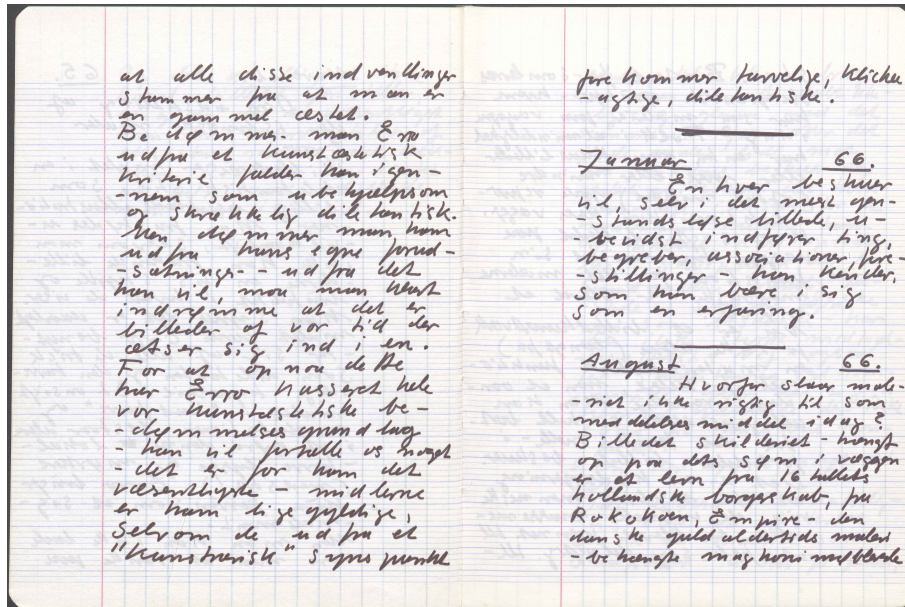 at alle disse indvendinger
stammer fra at man er
en gammel æstet.
Bedømmer man Erro
udfra et kunstæstetisk
kriterie falder han igen-
-nem som ubehjælpsom
og skrækkelig diletantisk.
Men dømmer man ham
udfra hans egne forud-
-sætninger - udfra det
han vil, maa man
indrømme at det er
billeder af vor tid der
ætser sig ind i en.
For at opnaa dette
har Erro kasseret hele
vor kunstæstetiske be-
-dømmelsesgrundlag
- han vil fortælle os noget
- det er for ham det
væsentligste - midlerne
er ham ligegyldige,
selv om de udfra et
"kunstnerisk" synspunkt
forekommer tarvelige, kliche
-agtige, diletantiske.
Januar 66.
Enhver beskuer
vil, selv i det mest gen-
-standsløse billede, u-
-bevidst indfører ting,
begreber, associationer, fore-
-stillinger - han kender,
som han bære i sig
som en erfaring.
August 66.
Hvorfor slaar male-
-riet ikke rigtig til som
meddelelsesmiddel idag?
Billedet skilderiet - hængt
op paa dets søm i væggen
er et levn fra 16 tallets
hollandske borgerskab, fra
Rokokoen, Empire - den
danske guldaldertids maleri
-behængte mahogni